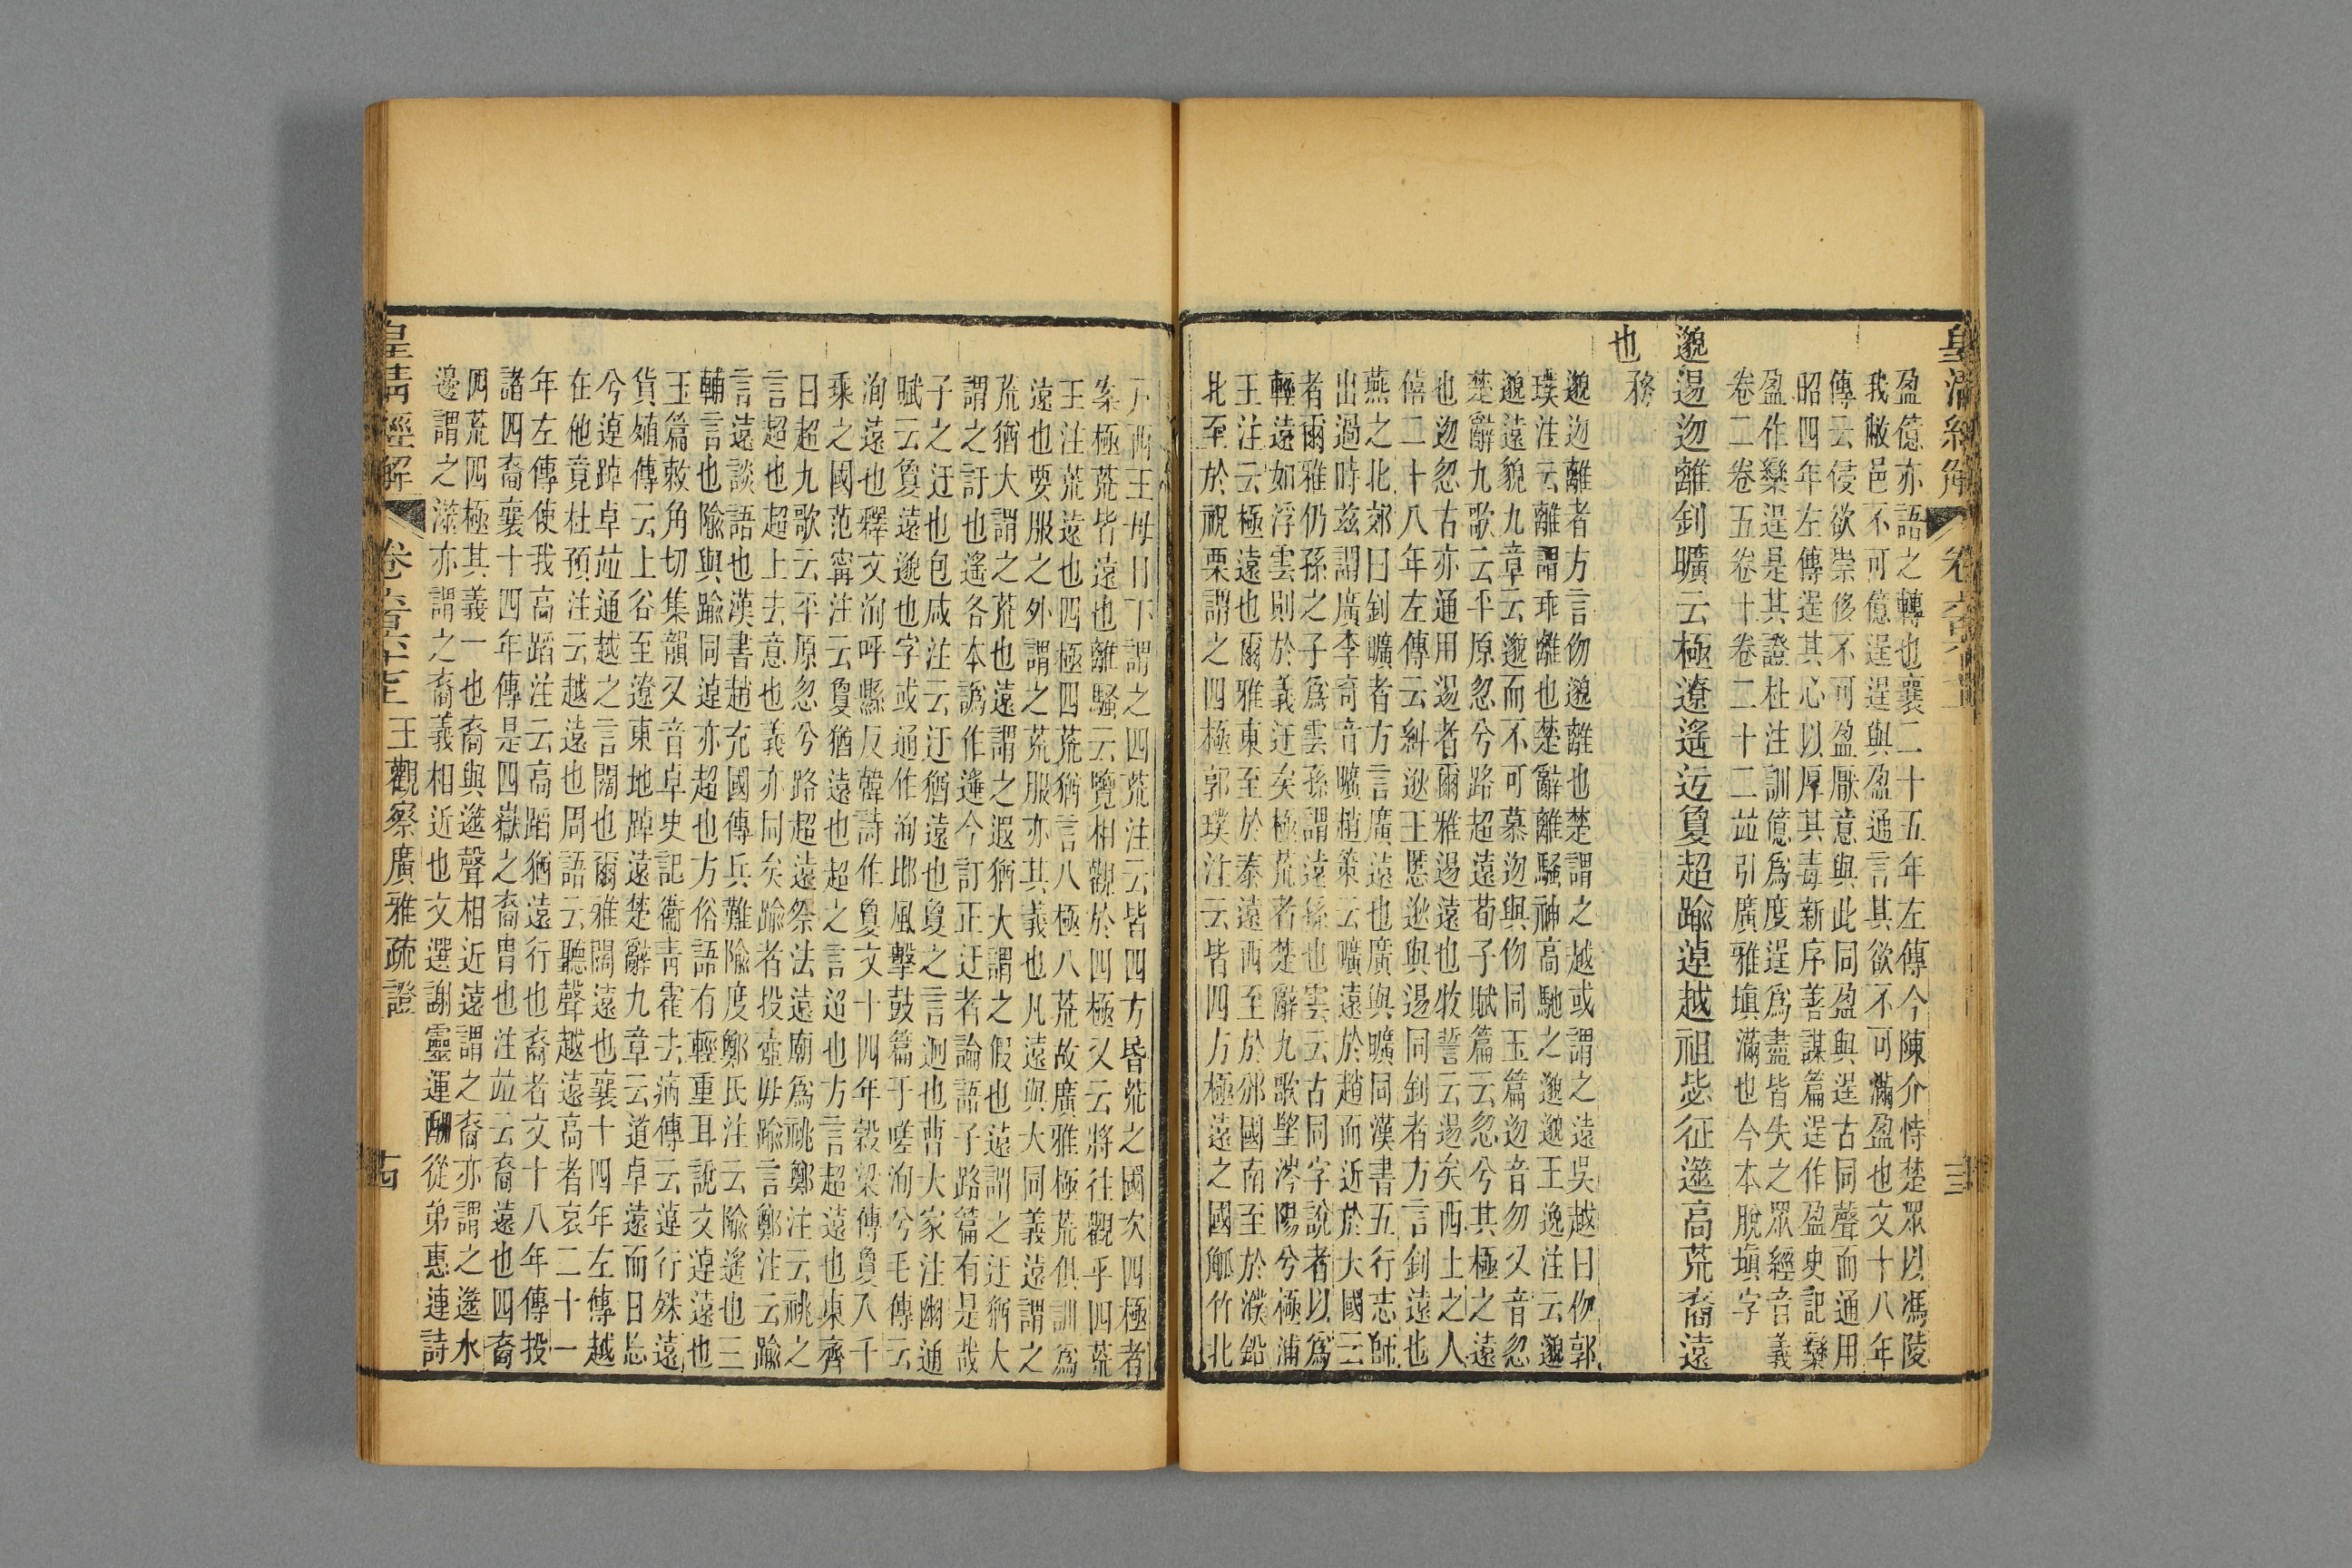 皇清經解
卷六百六十七
盈億亦語之轉也襄二十五年左傳今陳介恃楚眾以馮陵
我敝邑不可億逞逞與盈通言其欲不可滿盈也文十八年
傳云侵欲崇侈不可盈厭意與此同盈與逞古同聲而通用
昭四年左傳逞其心以厚其毒新序善謀篇逞作盈史記欒
盈作欒逞是其證杜注訓億為度逞為盡皆失之眾經音義
卷二卷五卷十卷二十二並引廣雅塡滿也今本脫塡字
邈逿迦離釗曠云極遼遙迃敻超踰逴越祖毖征遾高荒裔遠
也
務
邈迦離者方言伆邈離也楚謂之越或謂之遠吳越曰伆郭
璞注云離謂乖離也楚辭離騷神高馳之邈邈王逸注云邈
邈遠貌九章云邈而不可慕迦與伆同玉篇迦音勿又音忽
楚辭九歌云平原忽兮路超遠荀子賦篇云忽兮其極之遠
也迦忽古亦通用逿者爾雅逿遠也牧誓云逿矣西土之人
僖二十八年左傳云糾逖王慝逖與逿同釗者方言釗遠也
燕之北郊曰釗曠者方言廣遠也廣與曠同漢書五行志師
出過時茲謂廣李奇音曠趙策云曠遠於趙而近於大國云
者爾雅仍孫之子為雲孫謂遠孫也雲云古同字說者以為
輕遠如浮雲則於義迂矣極荒者楚辭九歌望涔陽兮極浦
王注云極遠也爾雅東至於泰遠西至於邠國南至於濮鉛
北至於祝栗謂之四極郭璞注云皆四方極遠之國觚竹北
戶西王母日下謂之四荒注云皆四方昏荒之國次四極者
案極荒皆遠也離騷云覽相觀於四極又云將往觀乎四荒
王注荒遠也四極四荒猶言八極八荒故廣雅極荒俱訓為
遠也要服之外謂之荒服亦其義也凡遠與大同義遠謂之
荒猶大謂之荒也遠謂之遐猶大謂之假也遠謂之迂猶大
謂之訏也遙各本譌作遥今訂正迂者論語子路篇有是哉
子之迂也包咸注云迂猶遠也敻之言迥也曹大家注幽通
賦云敻遠邈也字或通作洵邶風擊鼓篇于嗟洵兮毛傳云
洵遠也釋文洵呼縣反韓詩作敻文十四年穀梁傳敻入千
乘之國范甯注云敻猶遠也超之言迢也方言超遠也東齊
曰超九歌云平原忽兮路超遠祭法遠廟為祧鄭注云祧之
言超也超上去意也義亦同矣踰者投壺毋踰言鄭注云踰
言遠談語也漢書趙充國傳兵難隃度鄭氏注云隃遙也三
輔言也隃與踰同逴亦超也方俗語有輕重耳說文逴遠也
玉篇敕角切集韻又音卓史記衞靑霍去病傳云逴行殊遠
貨殖傳云上谷至遼東地踔遠楚辭九章云道卓遠而日忘
兮逴踔卓並通越之言闊也爾雅闊遠也襄十四年左傳越
在他竟杜預注云越遠也周語云聽聲越遠高者哀二十一
年左傳使我高蹈注云高蹈猶遠行也裔者文十八年傳投
諸四裔襄十四年傳是四嶽之裔冑也注並云裔遠也四裔
四荒四極其義一也裔與遾聲相近遠謂之裔亦謂之遾水
邊謂之澨亦謂之裔義相近也文選謝靈運酬從弟惠連詩
皇清經解
卷六百六十七
王觀察廣雅疏證